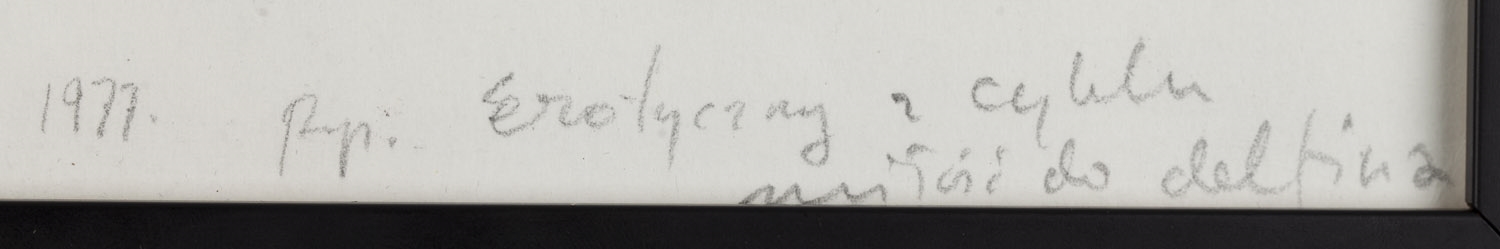 1977. Rys. Erotyczny z cyklu
miłość do delfina